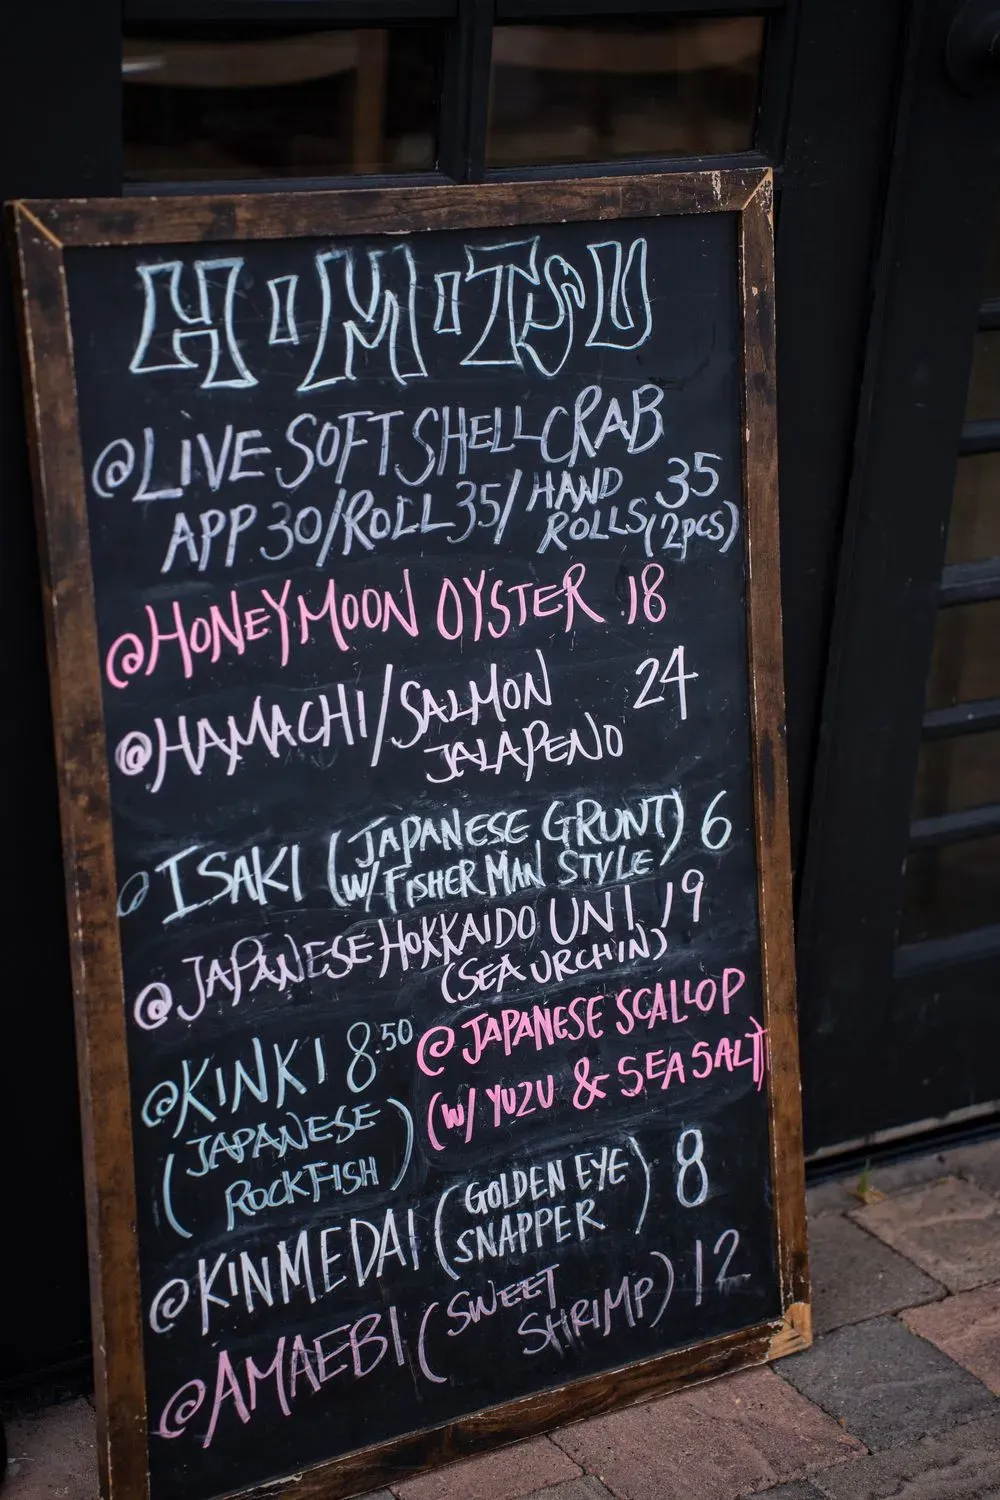 HIMITSU
@LIVE SOFT SHELL CRAB
APP 30/ROLL 35/HAND ROLLS (2PCS) 35
@HONEYMOON OYSTER 18
@HAMACHI/SALMON 24
JALAPENO
@ISAKI (JAPANESE GRUNT) 6
(W/ FISHERMAN STYLE)
@JAPANESE HOKKAIDO UNI 19
(SEA URCHIN)
@KINKI 8.50
(JAPANESE
ROCKFISH)
@JAPANESE SCALLOP
(W/ YUZU & SEA SALT)
@KINMEDAI (GOLDEN EYE
SNAPPER) 8
@AMAEBI (SWEET
SHRIMP) 12